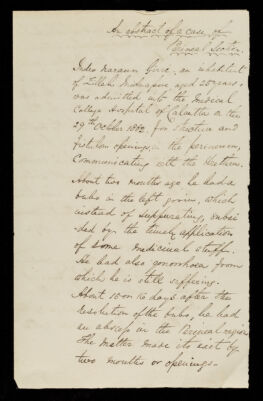 An abstract of a case of
Perineal
Inder Narain Gire, an inhabitant
of Zillah Midnapore aged 25 years,
was admitted into the Medical
College Hospital of Calcutta on the
29th October 1882 for Stricture and
fistulous openings, in the perineum,
Communicating with the Urethra.
About two months ago he had a
bubo in the left groin, which
instead of suppurating, subsi-
ded by the timely application
of some medicinal stuff.
He had also gonorrhoea from
which he is still suffering.
About 15 or 16 days after the
resolution of the bubo, he had
an abscess in the Perineal region
The matter made its exit by
two mouths or openings.